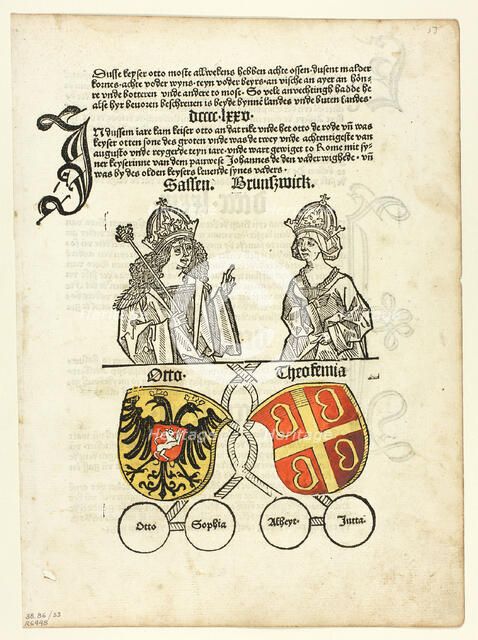 Dusse keyser otto moste allwekens hebben achte ossen· dusent malder
kornes· achte voder wyns· teyn voder beyrs· an vische an ayer an hon-
re vnde botteren vnde andere to mose· So vele anvechtingh hadde he
alse hyr bevoren beschreuen is beyde bynne landes vnde buten landes·
dcccc·lxxv·
IN dussem iare kam keiser otto an dat rike vnde het otto de rode vn was
keyser otten sone des groten vnde was de twey vnde achtentigeste van
augusto vnde reygerde teyn iare· vnde wart gewiget to Rome mit sy-
ner keyserinne van dem pauwese Johannes de den vader wighede· vn
was by des olden keysers leuende synes vaders·
Sassen· Brunszwick·
Otto· Theofemia
Otto Sophia Alheyt· Jutta·
Heritage Heritage
38.86/33
R6448